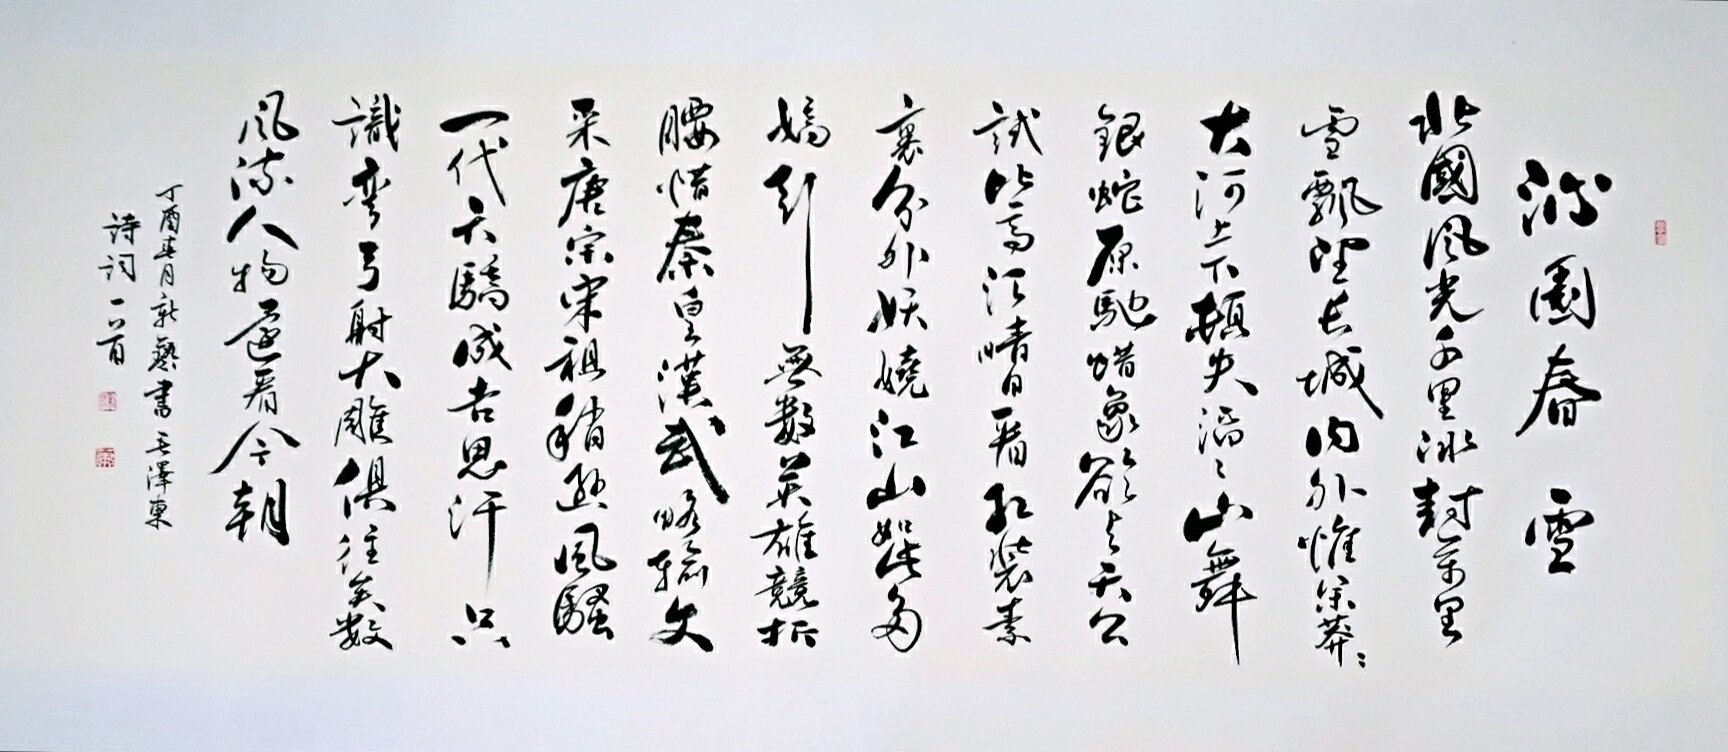 沁園春 雪
北國風光千里冰封萬里
雪飄望長城內外惟余莽々
大河上下頓失滔々山舞
銀蛇原馳蜡象欲與天公
試比高須晴日看紅裝素
裹分外妖嬈江山如此多
嬌引無數英雄競折
腰惜秦皇漢武略輸文
采唐宗宋祖稍遜風騷
一代天驕成吉思汗只
識彎弓射大雕俱往矣數
風流人物還看今朝
丁酉春月新藝書毛澤東
詩詞一首